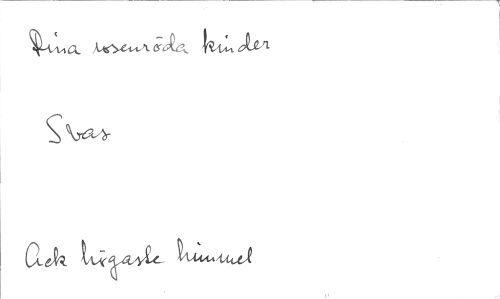 Dina rosenröda kinder
Svar
Ack högaste himmel